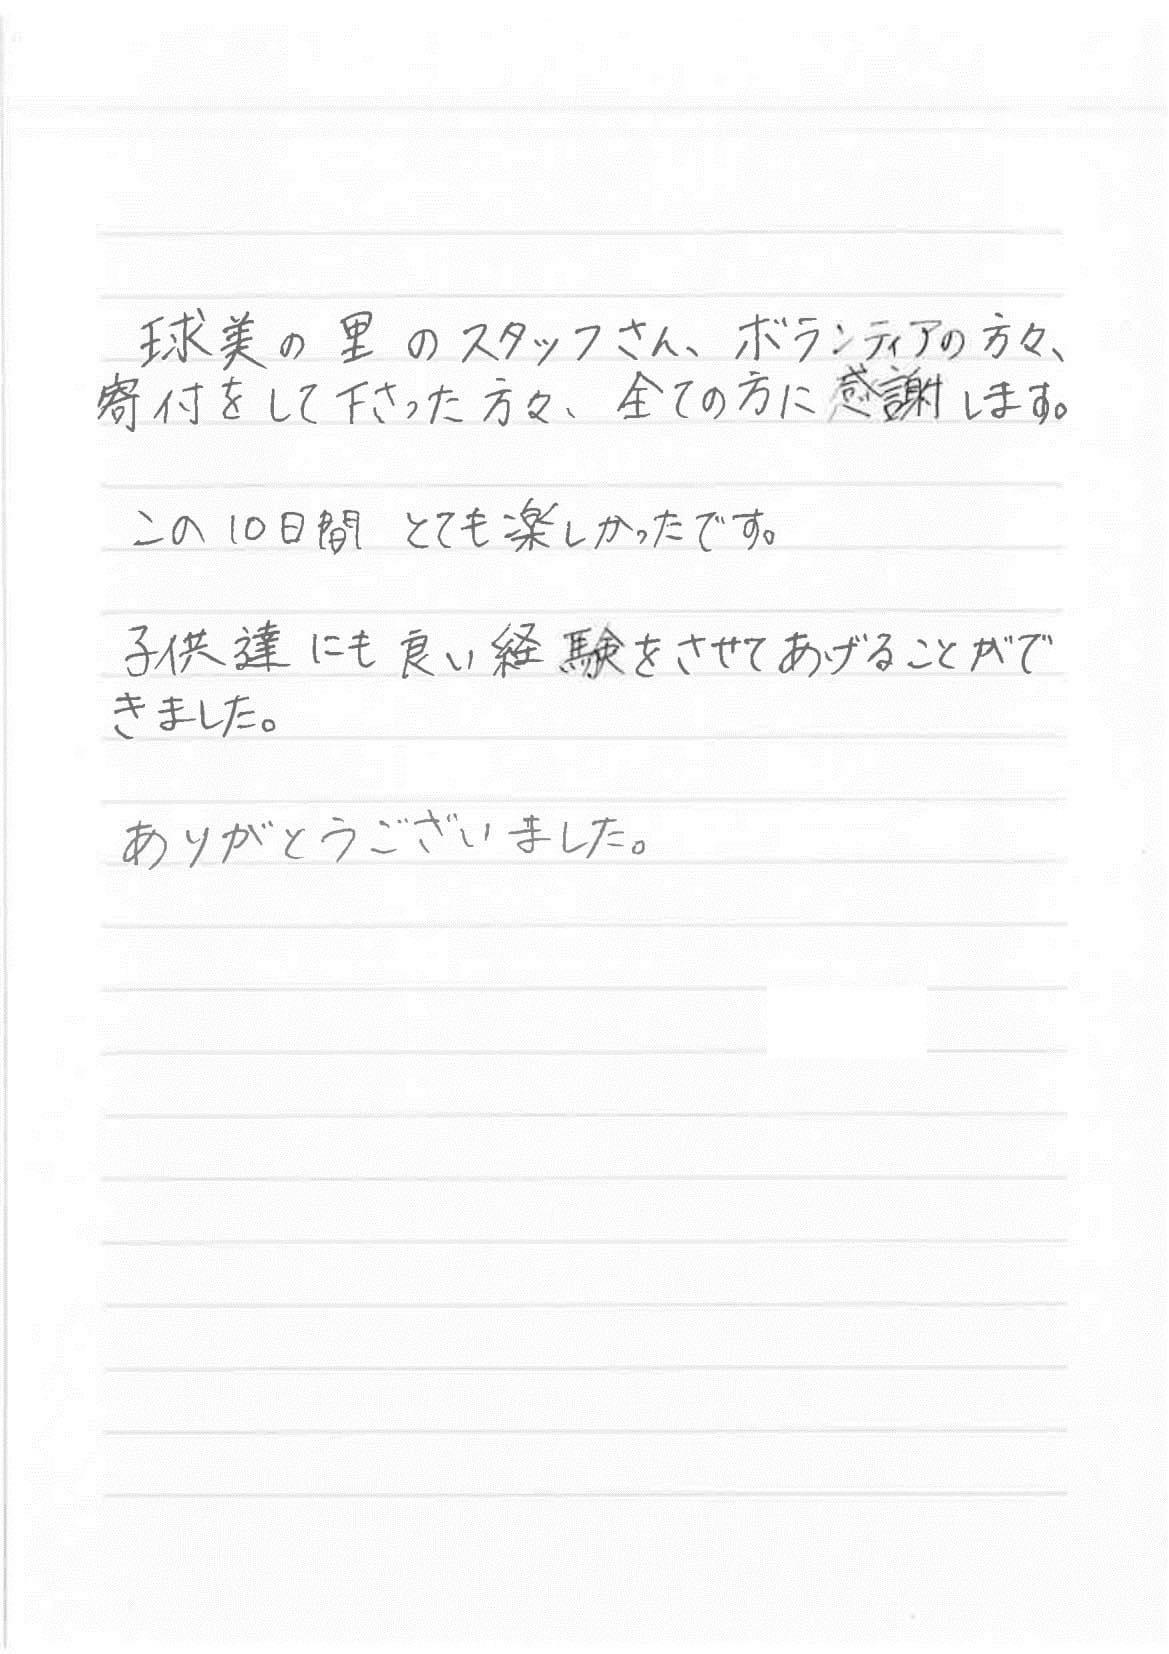 球美の里のスタッフさん、ボランティアの方々、
寄付をして下さった方々、全ての方に感謝します。
この10日間 とても楽しかったです。
子供達にも良い経験をさせてあげることがで
きました。
ありがとうございました。